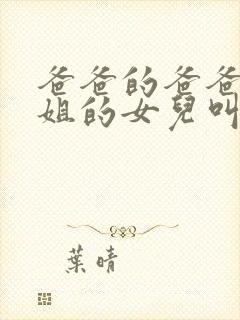 爸爸的爸爸
姐的女兒叫
葉晴